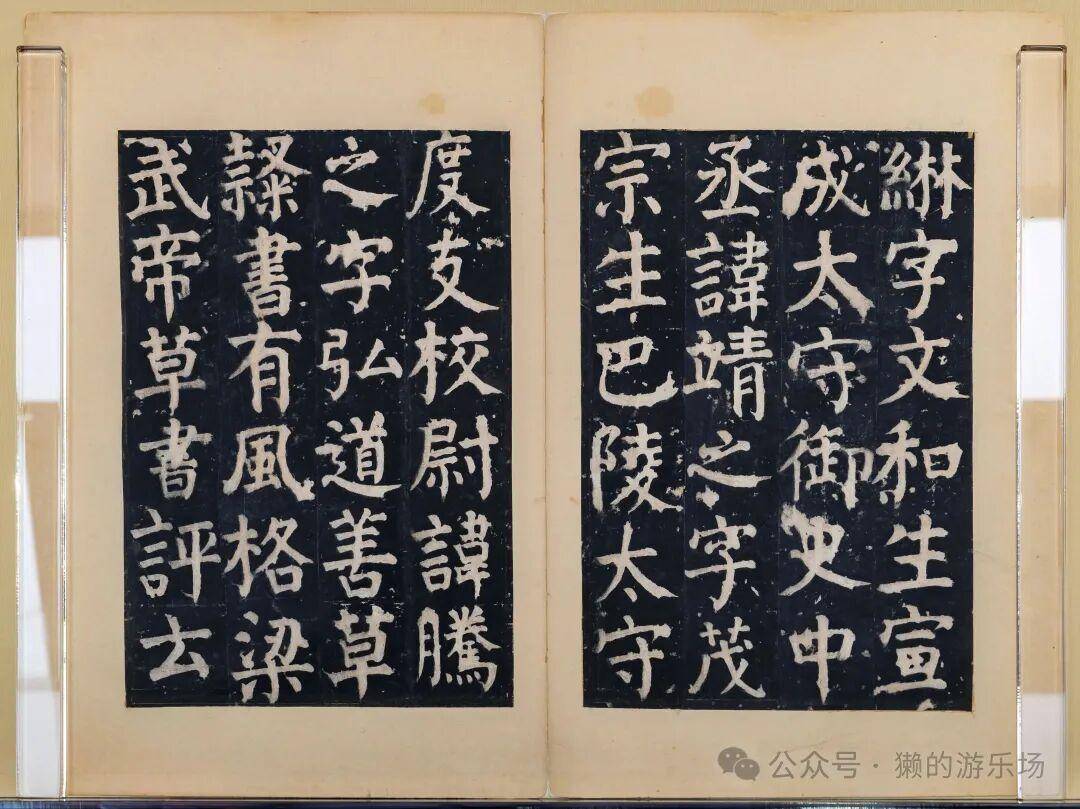 綝字文和生宣
成太守御史中
丞諱靖之字茂
宗生巴陵太守
度支校尉諱騰
之字弘道善草
隸書有風格梁
武帝草書評云
公众号·獭的游乐场